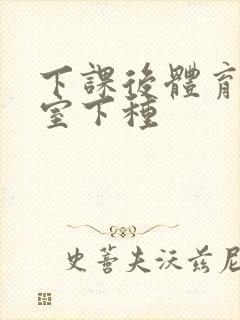 下課後體育
室下種
史蒂夫沃兹尼